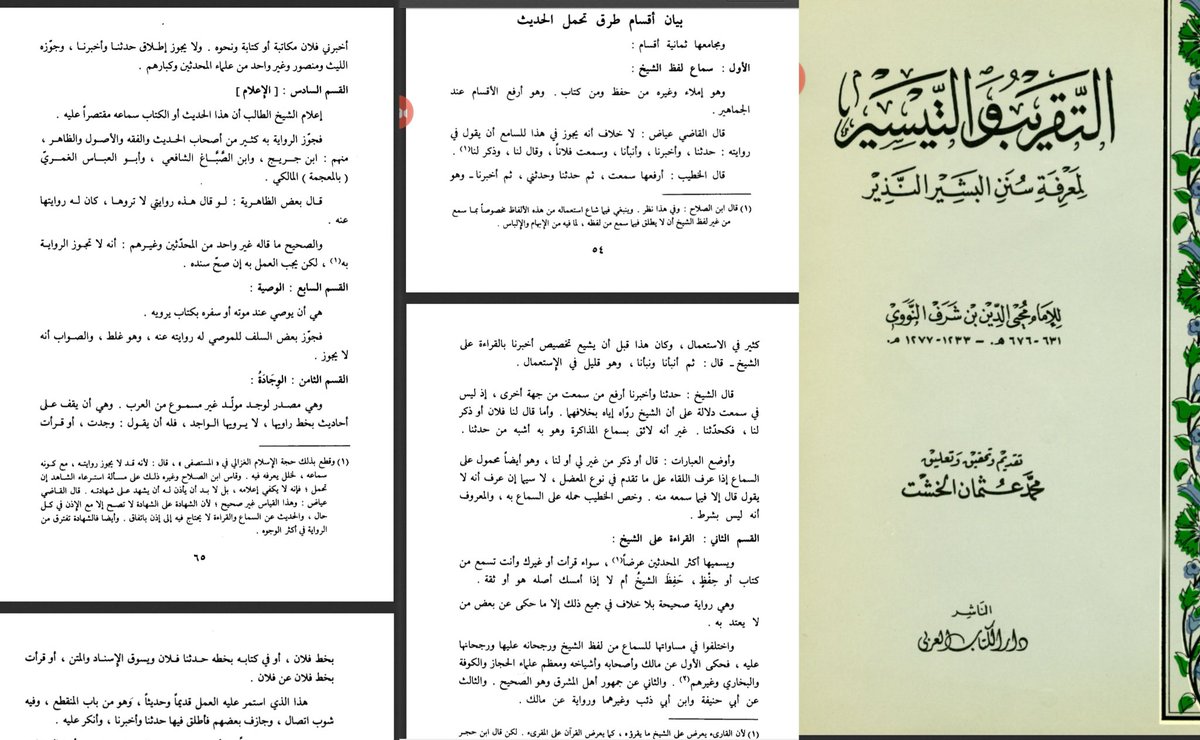 التقريب والتيسير
لمعرفة سنن البشير النذير
للإمام محيي الدين بن شرف النووي
٦٣١-٦٧٦ هـ. – ١٢٣٣-١٢٧٧ هـ.
تقديم وتحقيق وتعليق
محمد عثمان الخشت
الناشر
دار الكتاب العربي
بيان أقسام طرق تحمل الحديث
ومجامعها ثمانية أقسام :
الأول : سماع لفظ الشيخ :
وهو إملاء وغيره من حفظ ومن كتاب . وهو أرفع الأقسام عند
الجماهير .
قال القاضي عياض : لا خلاف أنه يجوز في هذا للسامع أن يقول في
روايته : حدثنا ، وأخبرنا ، وأنبأنا ، وسمعت فلاناً ، وقال لنا ، وذكر لنا(١) .
قال الخطيب : أرفعها سمعت ، ثم حدثنا وحدثني ، ثم أخبرنا ـ وهو
(١) قال ابن الصلاح : وفي هذا نظر . وينبغي فيما شاع استعماله من هذه الألفاظ مخصوصاً بما سمع
من غير لفظ الشيخ أن لا يطلق فيما سمع من لفظه ، لما فيه من الإيهام والإلباس .
٥٤
كثير في الاستعمال ، وكان هذا قبل أن يشيع تخصيص أخبرنا بالقراءة على
الشيخ ـ قال : ثم أنبأنا ونبأنا ، وهو قليل في الإستعمال .
قال الشيخ : حدثنا وأخبرنا أرفع من سمعت من جهة أخرى ، إذ ليس
في سمعت دلالة على أن الشيخ روّاه إياه بخلافهما . وأما قال لنا فلان أو ذكر
لنا ، فكحدّثنا . غير أنه لائق بسماع المذاكرة وهو به أشبه من حدثنا .
وأوضع العبارات : قال أو ذكر من غير لي أو لنا ، وهو أيضاً محمول على
السماع إذا عرف اللقاء على ما تقدم في نوع المعضل ، لا سيما إن عرف أنه لا
يقول قال إلا فيما سمعه منه . وخص الخطيب حمله على السماع به ، والمعروف
أنه ليس بشرط .
القسم الثاني : القراءة على الشيخ :
ويسميها أكثر المحدثين عرضاً(١) ، سواء قرأت أو غيرك وأنت تسمع من
كتاب أو حِفْظٍ ، حَفِظَ الشيخُ أم لا إذا أمسك أصله هو أو ثقة .
وهي رواية صحيحة بلا خلاف في جميع ذلك إلا ما حكى عن بعض من
لا يعتد به .
واختلفوا في مساواتها للسماع من لفظ الشيخ ورجحانه عليها ورجحانها
عليه ، فحكى الأول عن مالك وأصحابه وأشياخه ومعظم علماء الحجاز والكوفة
والبخاري وغيرهم(٢) . والثاني عن جمهور أهل المشرق وهو الصحيح . والثالث
عن أبي حنيفة وابن أبي ذئب وغيرهما ورواية عن مالك .
(١) لأن القارىء يعرض على الشيخ ما يقرؤه ، كما يعرض القرآن على المقرىء . لكن قال ابن حجر
أخبرني فلان مكاتبة أو كتابة ونحوه . ولا يجوز إطلاق حدثنا وأخبرنا ، وجوّزه
الليث ومنصور وغير واحد من علماء المحدثين وكبارهم .
القسم السادس : [ الإعلام ]
إعلام الشيخ الطالب أن هذا الحديث أو الكتاب سماعه مقتصراً عليه .
فجوّز الرواية به كثير من أصحاب الحديث والفقه والأصول والظاهر ،
منهم : ابن جريج ، وابن الصَّبَّاغ الشافعي ، وأبو العباس الغمريّ
( بالمعجمة ) المالكي .
قال بعض الظاهرية : لو قال هذه روايتي لا تروها ، كان له روايتها
عنه .
والصحيح ما قاله غير واحد من المحدّثين وغيرهم : أنه لا تجوز الرواية
به(١) ، لكن يجب العمل به إن صحّ سنده .
القسم السابع : الوصية :
هي أن يوصي عند موته أو سفره بكتاب يرويه .
فجوّز بعض السلف للموصي له روايته عنه ، وهو غلط ، والصواب أنه
لا يجوز .
القسم الثامن : الوِجَادَةُ :
وهي مصدر لوجد مولّد غير مسموع من العرب . وهي أن يقف على
أحاديث بخط راويها ، لا يرويها الواجد ، فله أن يقول : وجدت ، أو قرأت
(١) وقطع بذلك حجة الإسلام الغزالي في « المستصفى » ، قال : لأنه قد لا يجوز روايته ، مع كونه
سماعه ، لخلل يعرفه فيه . وقاس ابن الصلاح وغيره ذلك على مسألة استرعاء الشاهد إن
تحمل ؛ فإنه لا يكفي إعلامه ، بل لا بد أن يأذن له أن يشهد على شهادته . قال القاضي
عياض : وهذا القياس غير صحيح ؛ لأن الشهادة على الشهادة لا تصح إلا مع الإذن في كل
حال ، والحديث عن السماع والقراءة لا يحتاج فيه إلى إذن باتفاق . وأيضا فالشهادة تفترق من
الرواية في أكثر الوجوه .
٦٥
بخط فلان ، أو في كتابه بخطه حدثنا فلان ويسوق الإسناد والمتن ، أو قرأت
بخط فلان عن فلان .
هذا الذي استمر عليه العمل قديماً وحديثاً ، وَهو من باب المنقطع ، وفيه
شوب اتصال ، وجازف بعضهم فأطلق فيها حدثنا وأخبرنا ، وأنكر عليه .